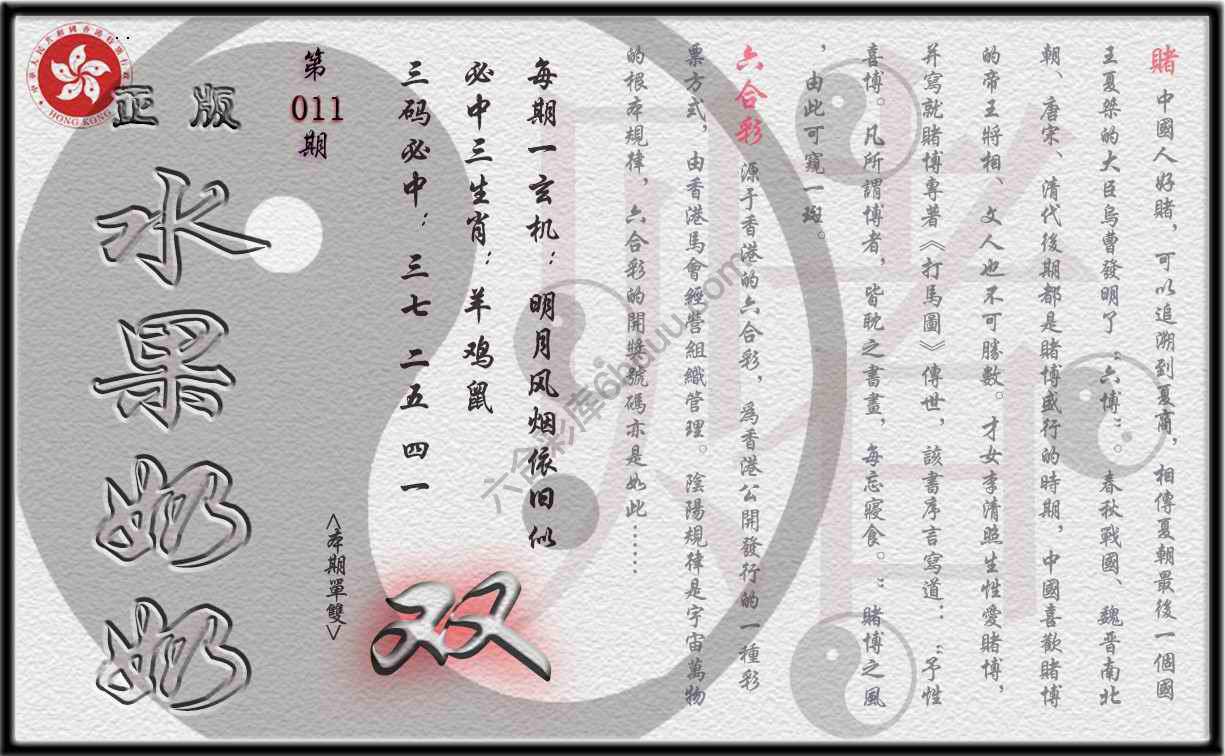 賭 中國人好賭，可以追溯到夏商，相傳夏朝最後一個國
王夏桀的大臣烏曹發明了“六博”。春秋戰國、魏晋南北
朝、唐宋、清代後期都是賭博盛行的時期，中國喜歡賭博
的帝王將相、文人也不可勝數。才女李清照生性愛賭博，
并寫就賭博專著《打馬圖》傳世，該書序言寫道：“予性
喜博。凡所謂博者，皆耽之書畫，每忘寢食。”賭博之風
，由此可窺一斑。
六合彩 源于香港的六合彩，爲香港公開發行的一種彩
票方式，由香港馬會經營組織管理。陰陽規律是宇宙萬物
的根本規律，六合彩的開獎號碼亦是如此……
每期一玄机：明月风烟依旧似
必中三生肖：羊鸡鼠
三码必中：三七 二五 四一
<本期單雙>
双
第
011
期
正版
水果奶奶
HONG KONG
六合彩库6hduu.com
賭